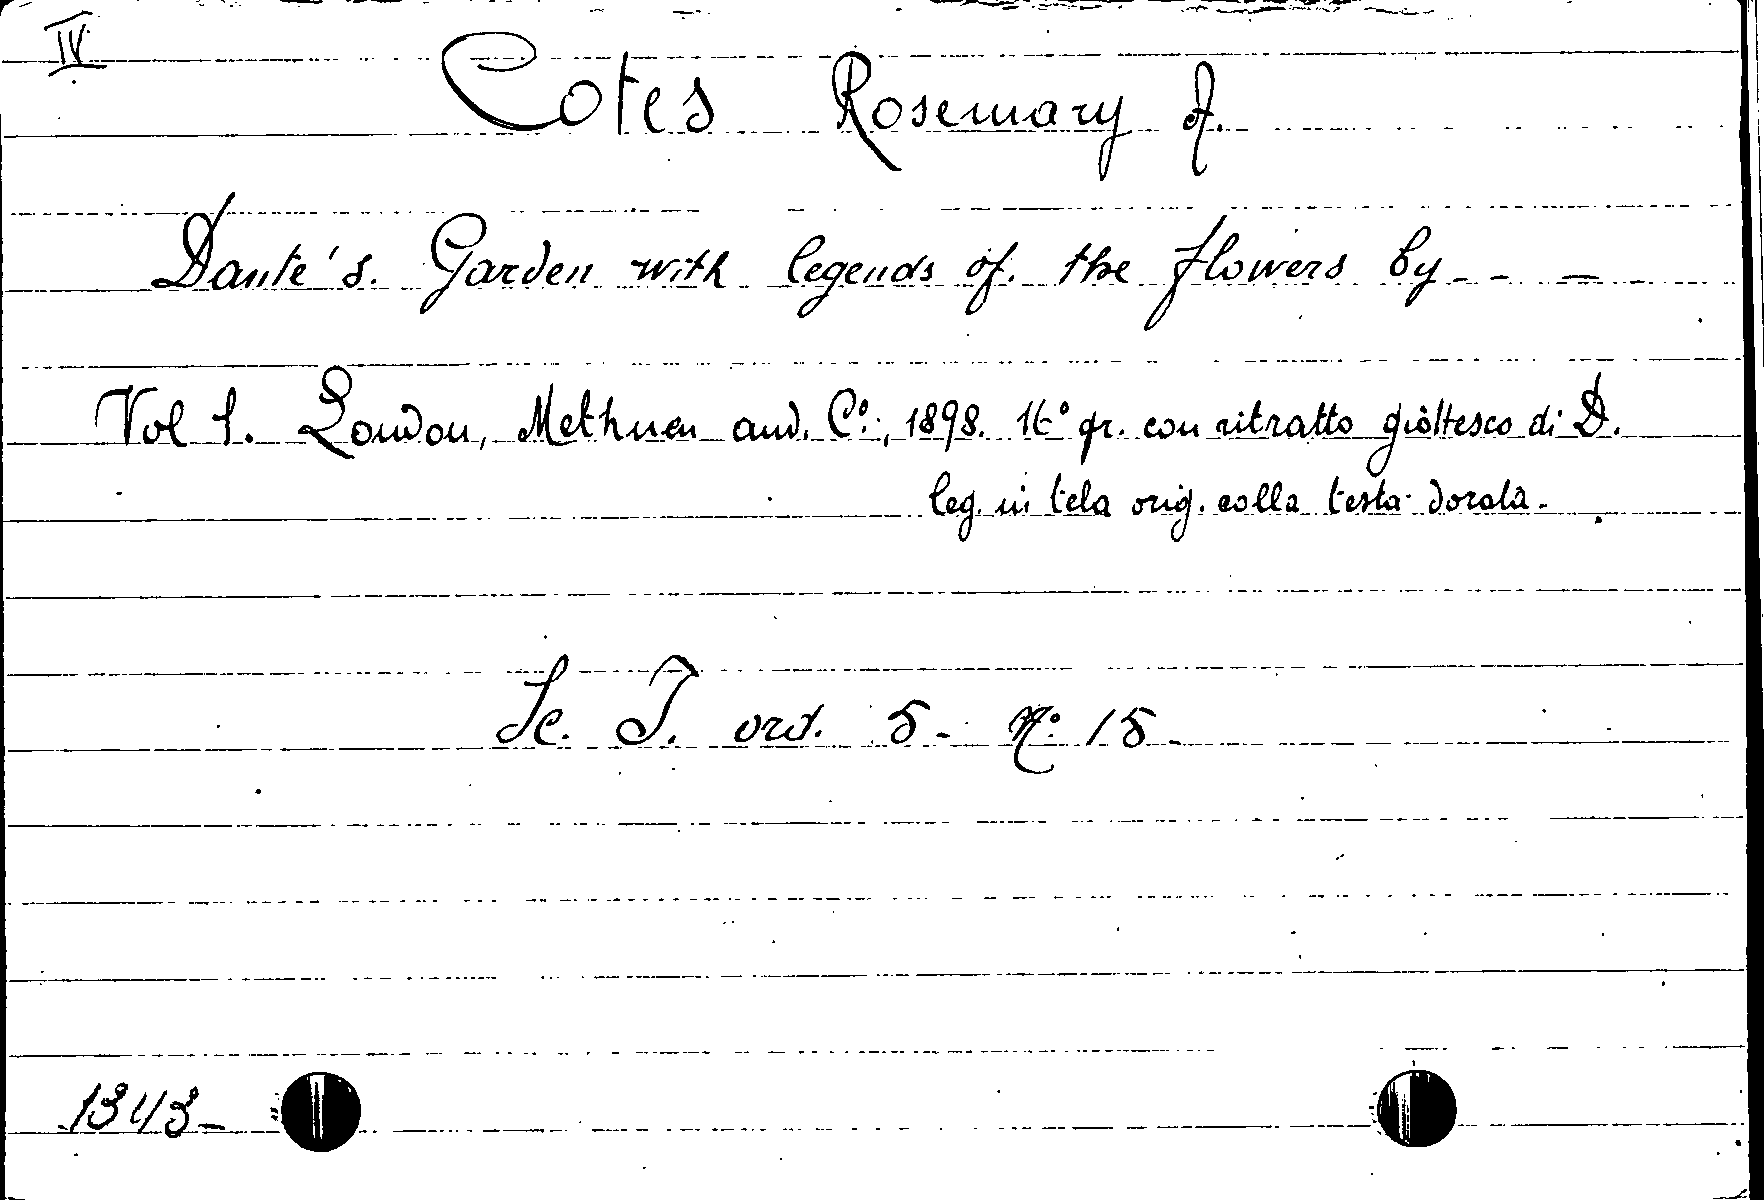 IV
Cotes Rosemary A.
Dante's. Garden with legends of. the flowers by - - -
Vol 1. London, Methuen and. C°:, 1898. 16° gr. con ritratto giottesco di D.
leg. in tela orig. colla testa dorata.
Sc. I. ord. 5- N.° 15-
1343-